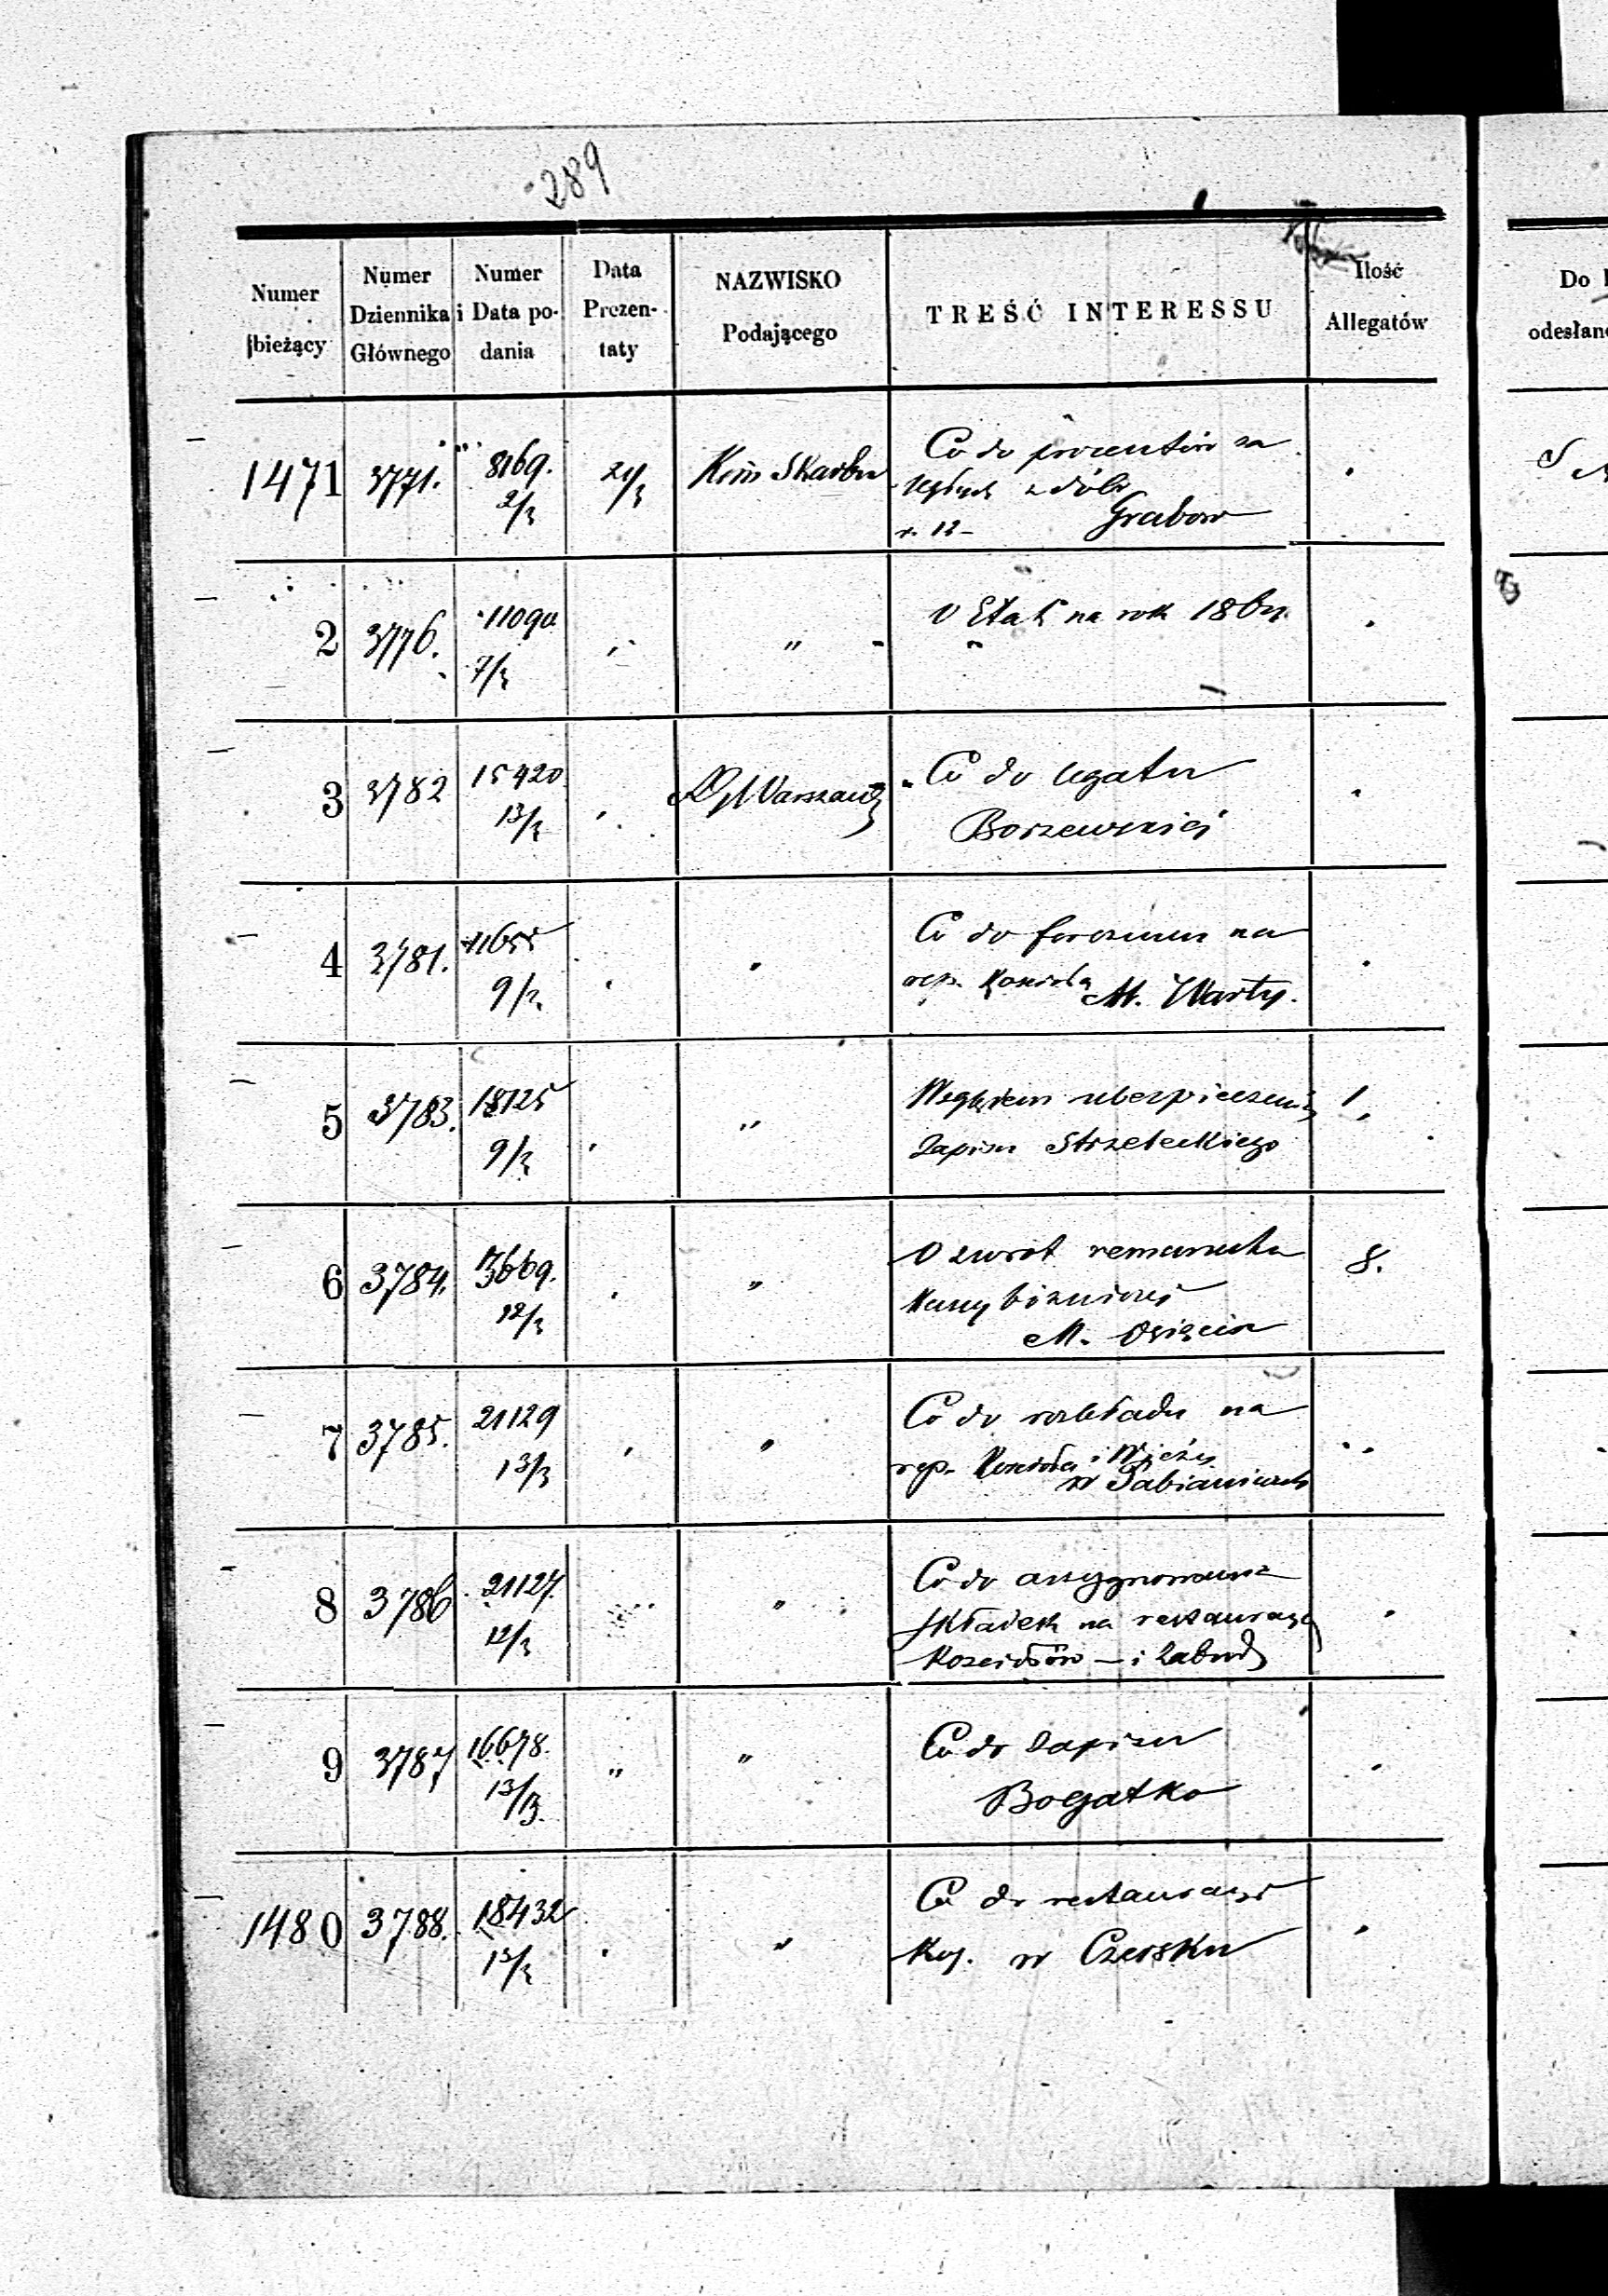 289
Numer bieżący
Numer Dziennika Głównego
Numer i Data podania
Data Prezentaty
NAZWISKO Podającego
TREŚĆ INTERESSU
Ilość Allegatów
Do
odesłan
1471 3771. 8169. 2/3 21/3 Kom Skarbu Co do procentów za
z dóbr
r. 12 – Grabow
2 3776. 11090 7/3 " " O Etat na rok 186
3 3782 15420 13/3 Rz Warszaw Co do legatu
4 3781. 11655 9/3 Co do na
rep. Kościoła M. Warty.
5 3783. 18125 9/3 " Względem ubezpieczenia 1.
Zapisu Strzeleckiego
6 3784. 3669. 12/3 " O zwrot remanentu 8.
Kassy bóżniczej
M.
7 3785. 21129 13/3 " Co do rozkładu na
rep. Kościoła i Wieży
w Pabianicach
8 3786 21127. 12/3 " Co do assygnowania
składek na restauracyą
Kościołów – i Zabud
9 3787 16678. 13/3 " " Co do Zapisu
Bogatko
1480 3788. 18432 13/3 " Co do restauracyi
Koś. w Czersku